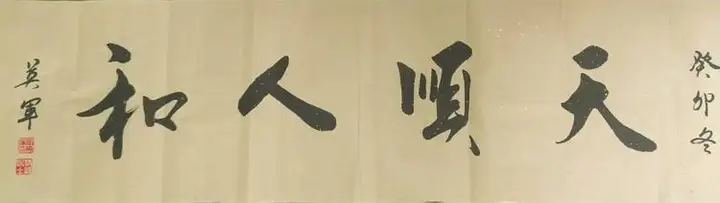 癸卯冬
天順人和
英軍